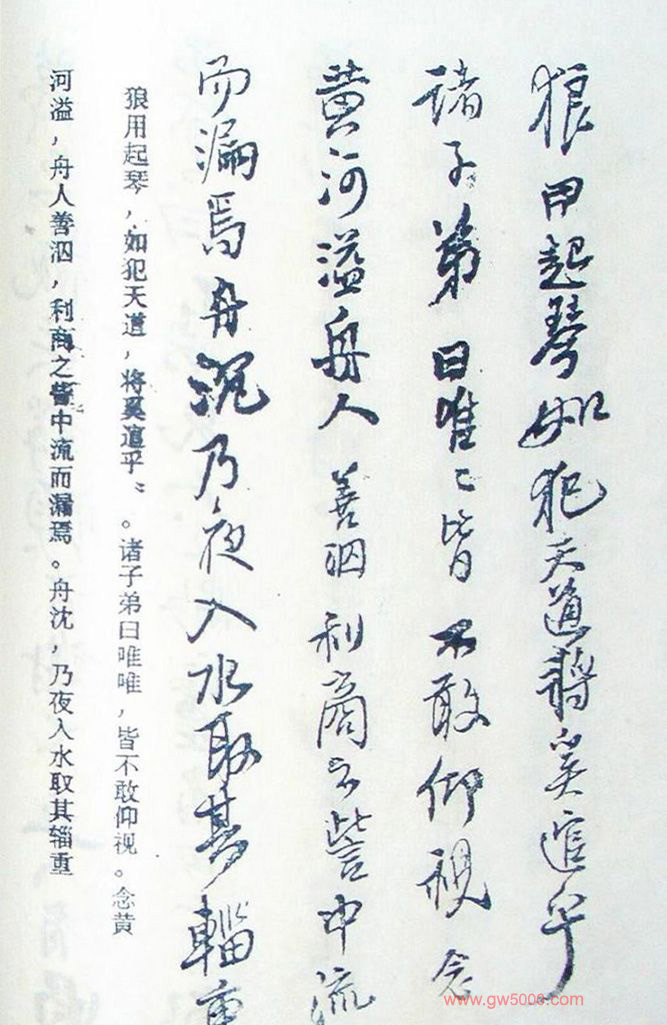 狼甲起琴如犯天道将奚逭乎
诸子弟曰唯〻皆不敢仰视念
黄河溢舟人善泅利商之訾中流
而漏焉舟沉乃夜入水取其辎重
狼用起琴，如犯天道，将奚逭乎〻。诸子弟曰唯唯，皆不敢仰视。念黄
河溢，舟人善泅，利商之訾中流而漏焉。舟沈，乃夜入水取其辎重
www.gw5008.com